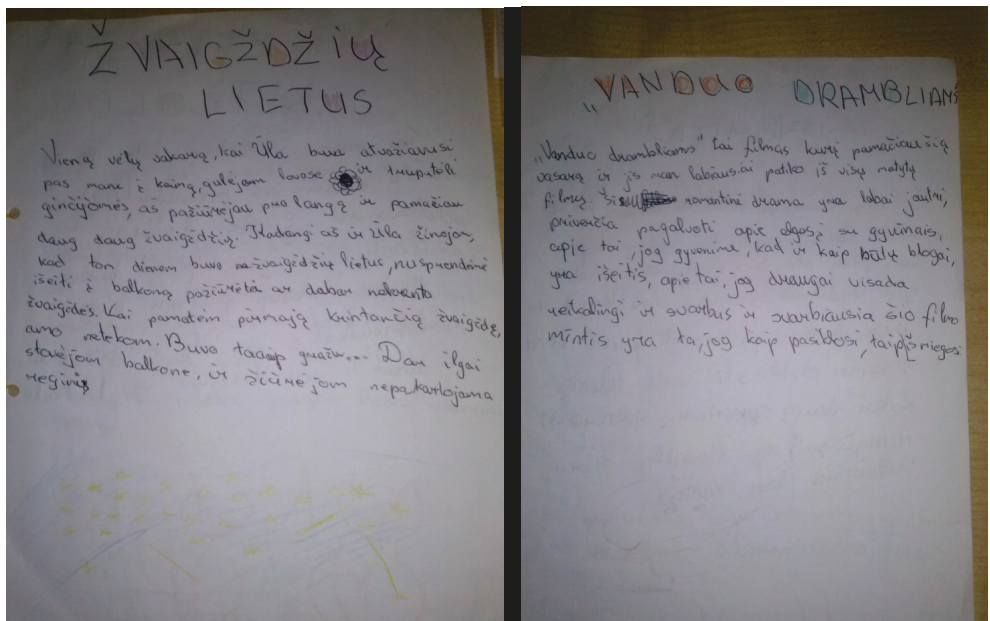 ŽVAIGŽDŽIŲ
LIETUS
Vieną vėlų vakarą, kai Ūla buvo atvažiavusi
pas mane į kaimą, gulėjom lovose ir truputėli
ginčijomės, aš pažiūrėjau pro langą ir pamačiau
daug daug žvaigždžių. Kadangi aš ir Ūla žinojom,
kad tom dienom buvo žvaigždžių lietus, nusprendėmė
išeiti į balkoną pažiūrėta ar dabar nekrento
žvaigždės. Kai pamatėm pirmąją krintančią žvaigždę,
amo netekom. Buvo taaip gražu... Dar ilgai
stovėjom balkone, ir žiūrėjom nepakartojama
reginį
„VANDUO DRAMBLIAMS
„Vanduo drambliams" tai filmas kurį pamačiau šią
vasarą ir jis man labiausiai patiko iš visų matytų
filmų. Ši romantinė drama yra labai jautri,
priverčia pagalvoti apie elgesį su gyvūnais,
apie tai, jog gyvenime, kad ir kaip būtų blogai,
yra išeitis, apie tai, jog draugai visada
reikalingi ir svarbus ir svarbiausia šio filmo
mintis yra ta, jog kaip pasiklosi, taip išmiegosi